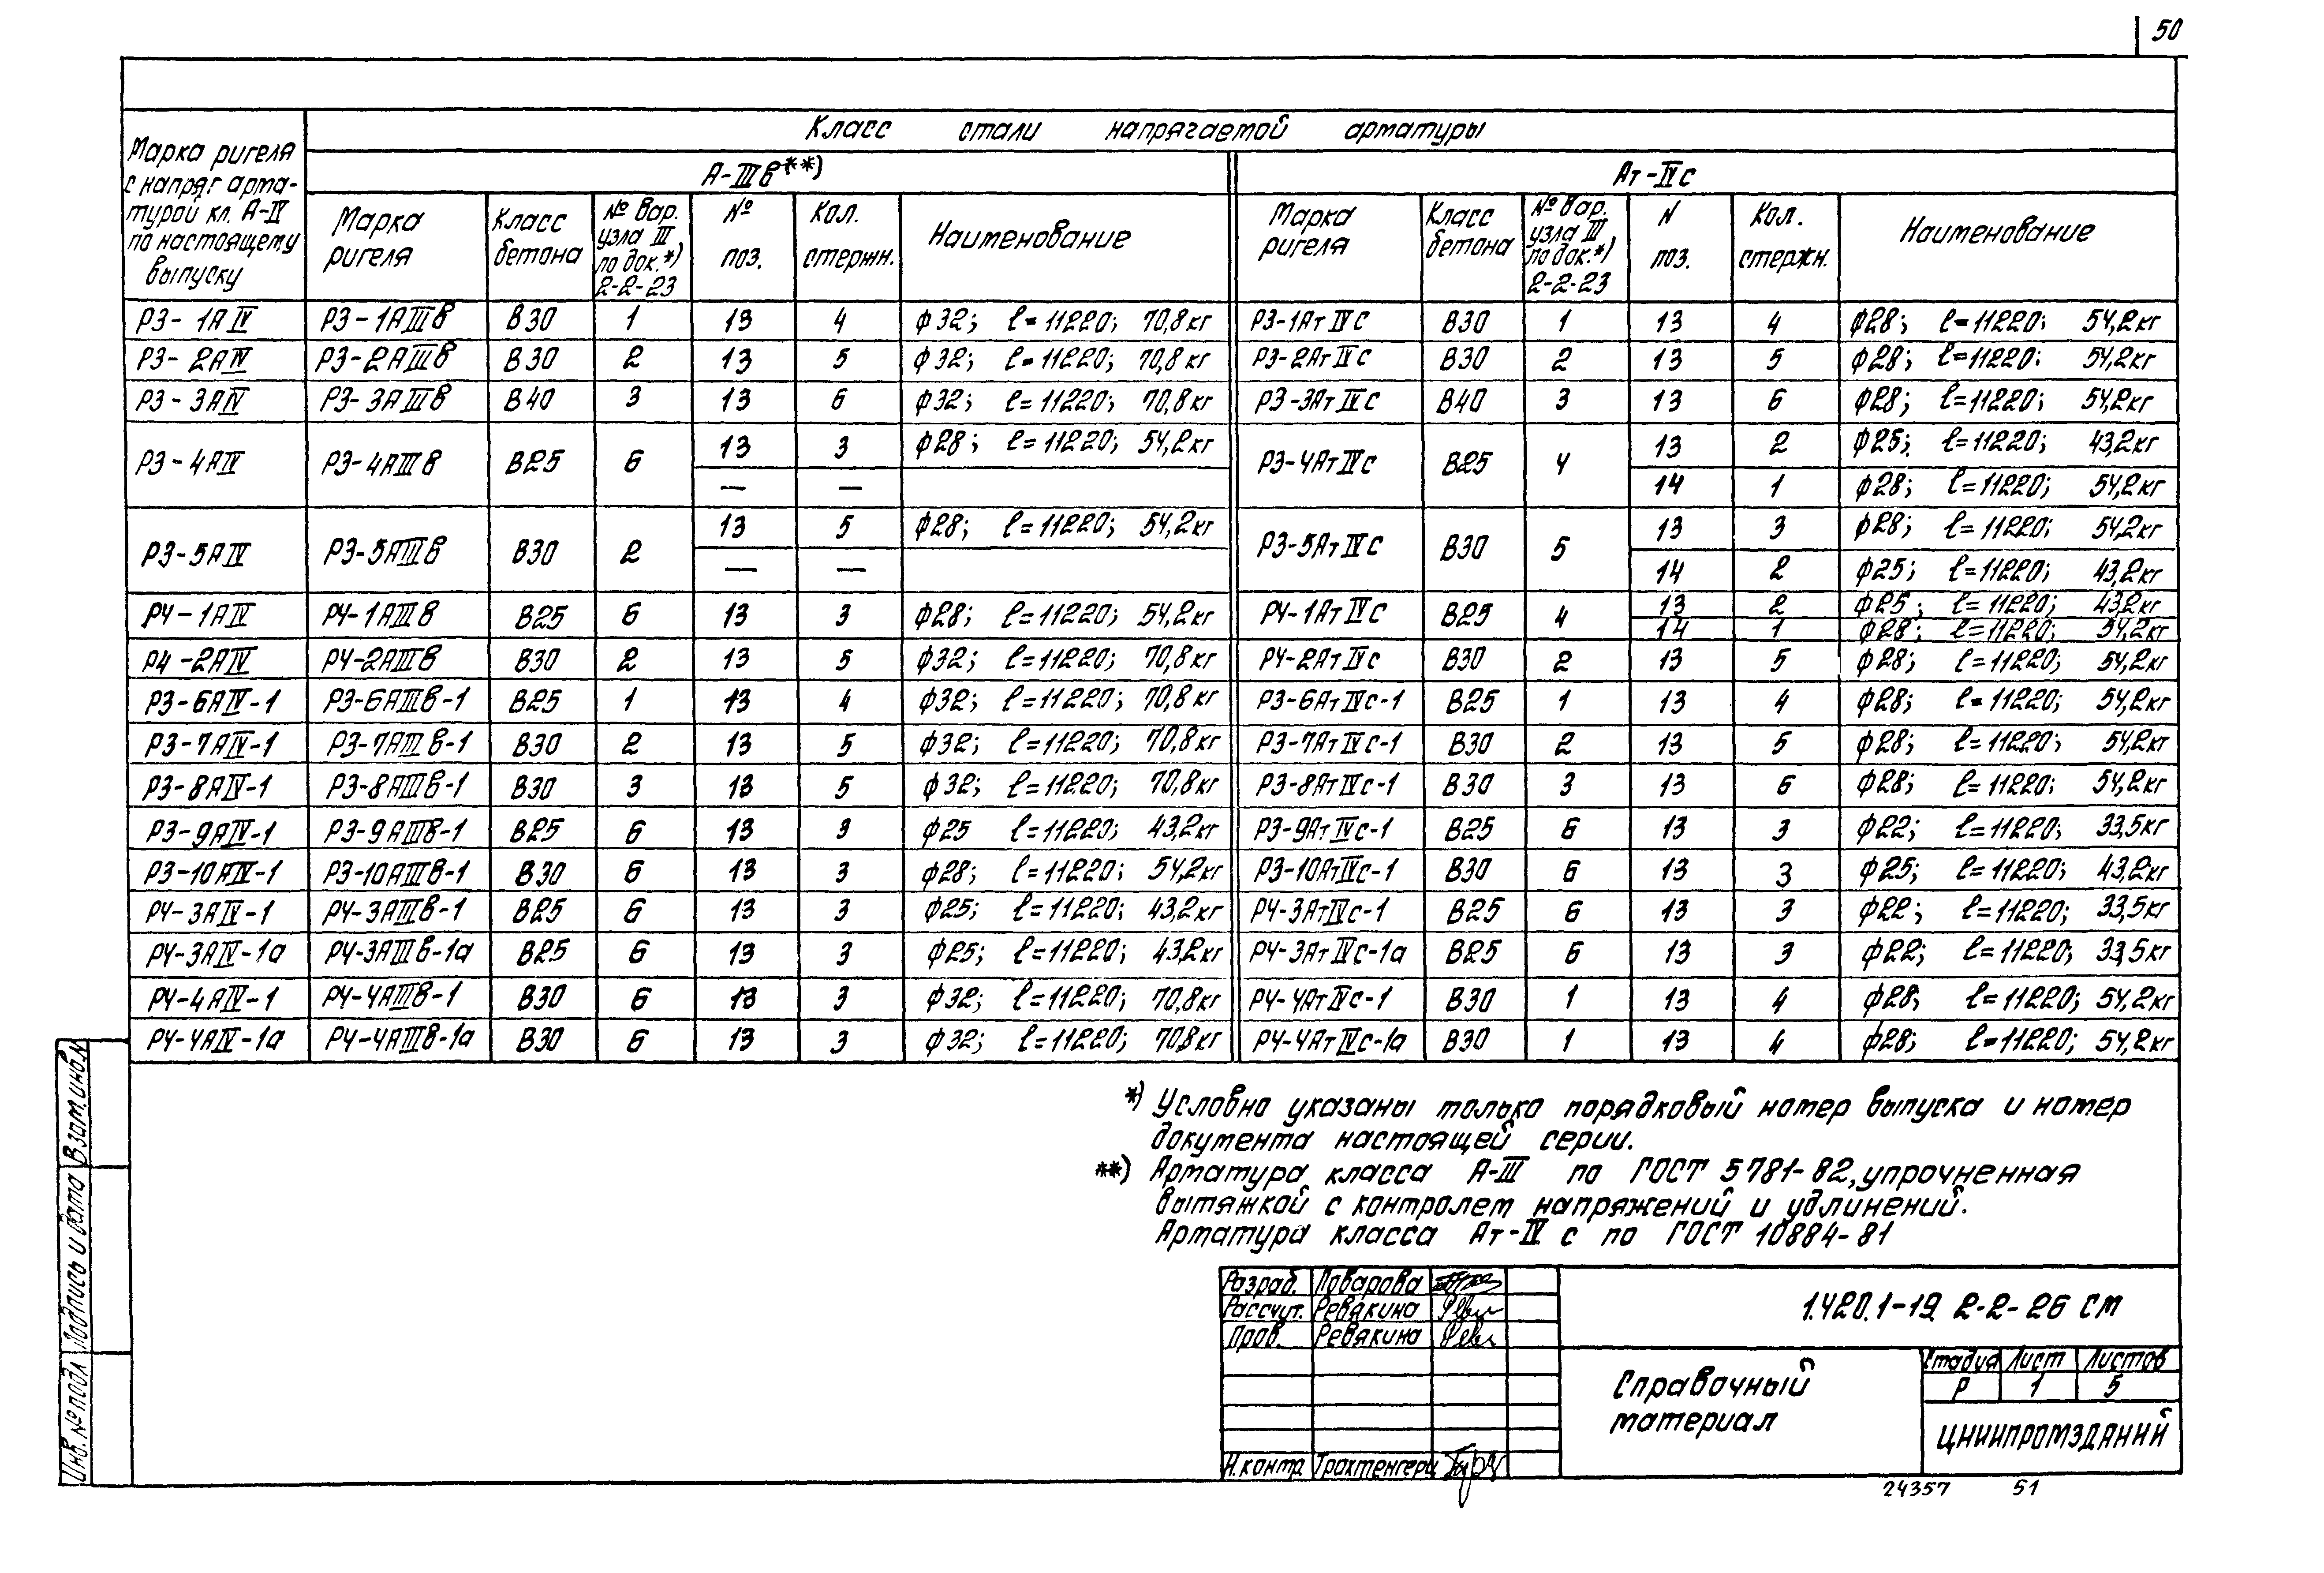 50
Класс стали напрягаемой арматуры
Марка ригеля
с напряг арма-
турой кл. А-IV
по настоящему
выпуску
А-IIIв**)
Ат-IVс
Марка
ригеля
Класс
бетона
№ вар.
узла III
по док.*)
2-2-23
№
поз.
Кол.
стержн.
Наименование
Марка
ригеля
Класс
бетона
№ вар.
узла III
по док.*)
2-2-23
N
поз.
Кол.
стержн.
Наименование
Р3-1АIV Р3-1АIIIв В30 1 13 4 ф32; ℓ=11220; 70,8кг Р3-1АтIVс В30 1 13 4 ф28; ℓ=11220; 54,2кг
Р3-2АIV Р3-2АIIIв В30 2 13 5 ф32; ℓ=11220; 70,8кг Р3-2АтIVс В30 2 13 5 ф28; ℓ=11220; 54,2кг
Р3-3АIV Р3-3АIIIв В40 3 13 6 ф32; ℓ=11220; 70,8кг Р3-3АтIVс В40 3 13 6 ф28; ℓ=11220; 54,2кг
Р3-4АIV Р3-4АIIIв В25 6 13 3 ф28; ℓ=11220; 54,2кг Р3-4АтIVс В25 4 13 2 ф25; ℓ=11220; 43,2кг
— — 14 1 ф28; ℓ=11220; 54,2кг
Р3-5АIV Р3-5АIIIв В30 2 13 5 ф28; ℓ=11220; 54,2кг Р3-5АтIVс В30 5 13 3 ф28; ℓ=11220; 54,2кг
— — 14 2 ф25; ℓ=11220; 43,2кг
Р4-1АIV Р4-1АIIIв В25 6 13 3 ф28; ℓ=11220; 54,2кг Р4-1АтIVс В25 4 13 2 ф25; ℓ=11220; 43,2кг
14 1 ф28; ℓ=11220; 54,2кг
Р4-2АIV Р4-2АIIIв В30 2 13 5 ф32; ℓ=11220; 70,8кг Р4-2АтIVс В30 2 13 5 ф28; ℓ=11220; 54,2кг
Р3-6АIV-1 Р3-6АIIIв-1 В25 1 13 4 ф32; ℓ=11220; 70,8кг Р3-6АтIVс-1 В25 1 13 4 ф28; ℓ=11220; 54,2кг
Р3-7АIV-1 Р3-7АIIIв-1 В30 2 13 5 ф32; ℓ=11220; 70,8кг Р3-7АтIVс-1 В30 2 13 5 ф28; ℓ=11220; 54,2кг
Р3-8АIV-1 Р3-8АIIIв-1 В30 3 13 5 ф32; ℓ=11220; 70,8кг Р3-8АтIVс-1 В30 3 13 6 ф28; ℓ=11220; 54,2кг
Р3-9АIV-1 Р3-9АIIIв-1 В25 6 13 3 ф25 ℓ=11220; 43,2кг Р3-9АтIVс-1 В25 6 13 3 ф22; ℓ=11220; 33,5кг
Р3-10АIV-1 Р3-10АIIIв-1 В30 6 13 3 ф28; ℓ=11220; 54,2кг Р3-10АтIVс-1 В30 6 13 3 ф25; ℓ=11220; 43,2кг
Р4-3АIV-1 Р4-3АIIIв-1 В25 6 13 3 ф25; ℓ=11220; 43,2кг Р4-3АтIVс-1 В25 6 13 3 ф22; ℓ=11220; 33,5кг
Р4-3АIV-1а Р4-3АIIIв-1а В25 6 13 3 ф25; ℓ=11220; 43,2кг Р4-3АтIVс-1а В25 6 13 3 ф22; ℓ=11220; 33,5кг
Р4-4АIV-1 Р4-4АIIIв-1 В30 6 13 3 ф32; ℓ=11220; 70,8кг Р4-4АтIVс-1 В30 1 13 4 ф28; ℓ=11220; 54,2кг
Р4-4АIV-1а Р4-4АIIIв-1а В30 6 13 3 ф32; ℓ=11220; 70,8кг Р4-4АтIVс-1а В30 1 13 4 ф28; ℓ=11220; 54,2кг
*) Условно указаны только порядковый номер выпуска и номер
документа настоящей серии.
**) Арматура класса А-III по ГОСТ 5781-82, упрочненная
вытяжкой с контролем напряжений и удлинений.
Арматура класса Ат-IV с по ГОСТ 10884-81
Взам.инв.N
Подпись и дата
Инв.№ подл
Разраб. Поварова
Рассчит. Ревякина
Пров. Ревякина
Н.контр. Трахтенгерц
1.420.1-19 2-2-26 СМ
Справочный
материал
Стадия Лист Листов
Р 1 5
ЦНИИПРОМЗДАНИЙ
24357 51